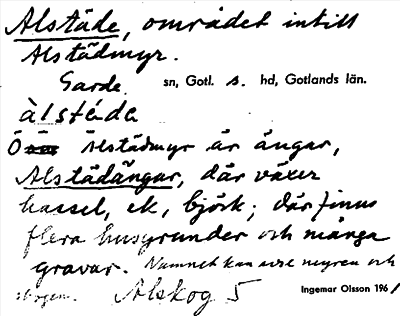 Alstäde, området intill
Alstädmyr.
Garde sn, Gotl. s. hd, Gotlands län.
àlstéda
Ö Alstädmyr är ängar,
Alstädängar, där växer
hassel, ek, björk; där finns
flera husgrunder och många
gravar. Namnet kan avse myren och
skogen. Alskog 5
Ingemar Olsson 1961